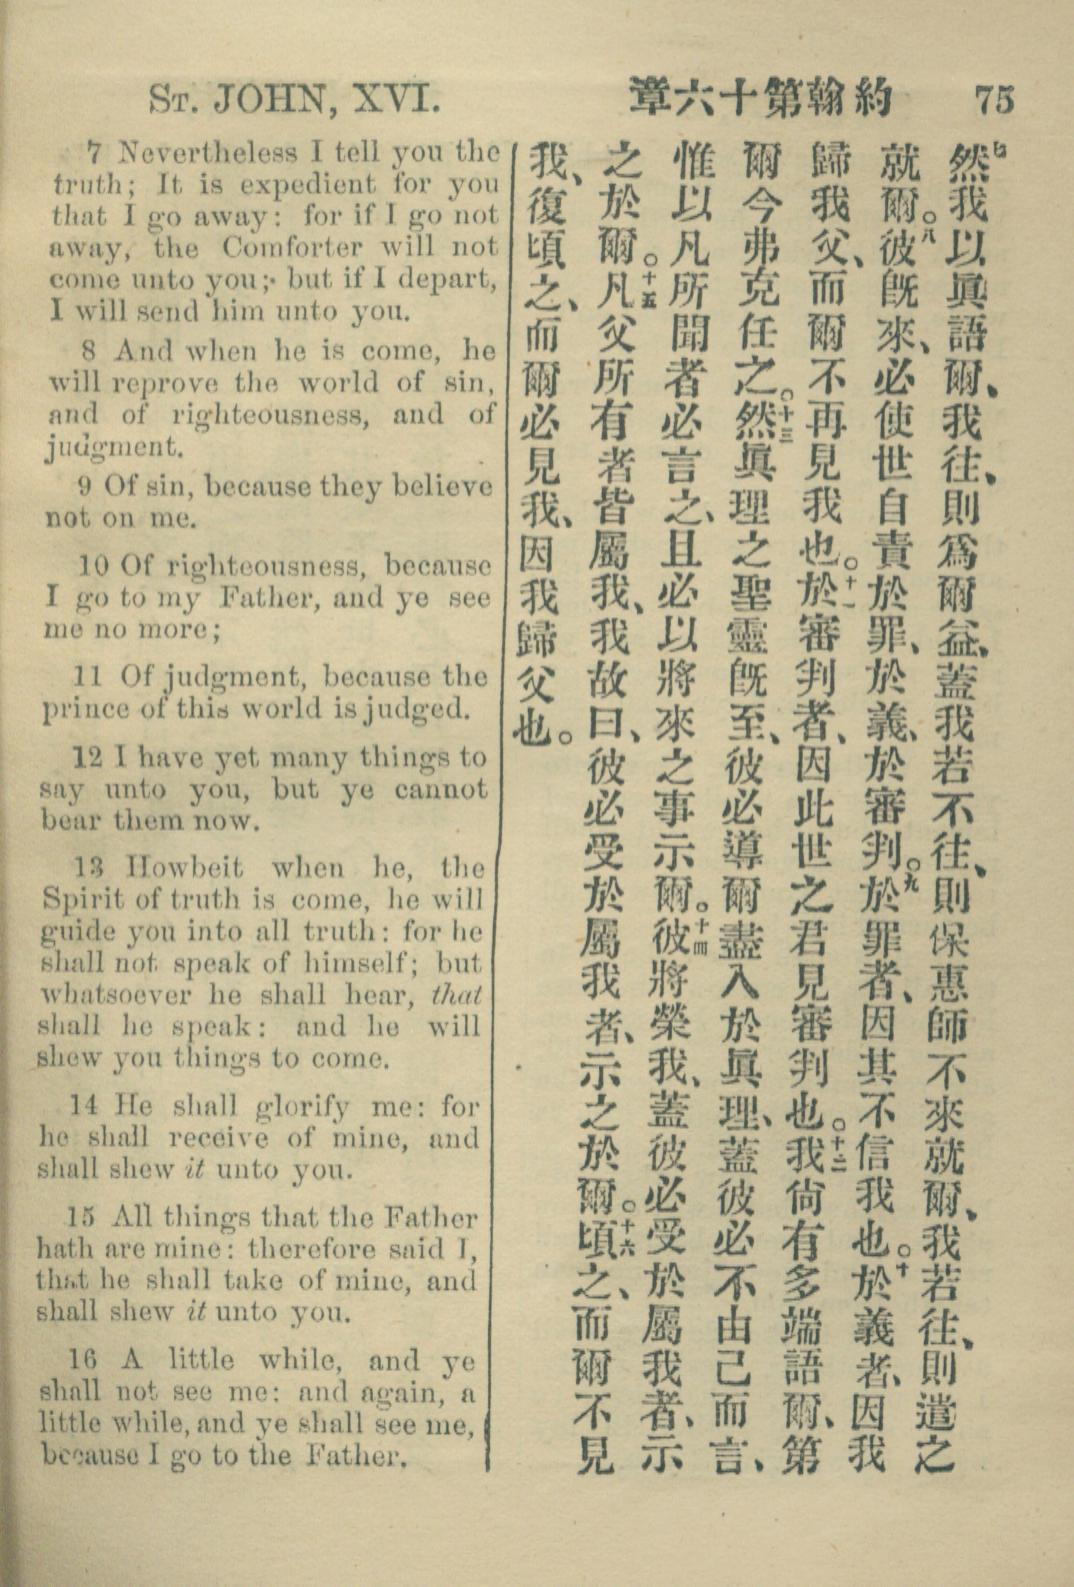 ST. JOHN, XVI.
約翰第十六章
75
7 Nevertheless I tell you the
truth; It is expedient for you
that I go away: for if I go not
away, the Comforter will not
come unto you; but if I depart,
I will send him unto you.
8 And when he is come, he
will reprove the world of sin,
and of righteousness, and of
judgment.
9 Of sin, because they believe
not on me.
10 Of righteousness, because
I go to my Father, and ye see
me no more;
11 Of judgment, because the
prince of this world is judged.
12 I have yet many things to
say unto you, but ye cannot
bear them now.
13 Howbeit when he, the
Spirit of truth is come, he will
guide you into all truth: for he
shall not speak of himself; but
whatsoever he shall hear, that
shall he speak: and he will
shew you things to come.
14 He shall glorify me: for
he shall receive of mine, and
shall shew it unto you.
15 All things that the Father
hath are mine: therefore said I,
that he shall take of mine, and
shall shew it unto you.
16 A little while, and ye
shall not see me: and again, a
little while, and ye shall see me,
because I go to the Father.
七然我以眞語爾、我往、則爲爾益、蓋我若不往、則保惠師不來就爾、我若往、則遣之
就爾。八彼旣來、必使世自責於罪、於義、於審判。九於罪者、因其不信我也。十於義者、因我
歸我父、而爾不再見我也。十一於審判者、因此世之君見審判也。十二我尙有多端語爾、第
爾今弗克任之。十三然眞理之聖靈旣至、彼必導爾盡入於眞理、蓋彼必不由己而言、
惟以凡所聞者必言之、且必以將來之事示爾。十四彼將榮我、蓋彼必受於屬我者、示
之於爾。十五凡父所有者皆屬我、我故曰、彼必受於屬我者、示之於爾。十六頃之、而爾不見
我、復頃之、而爾必見我、因我歸父也。